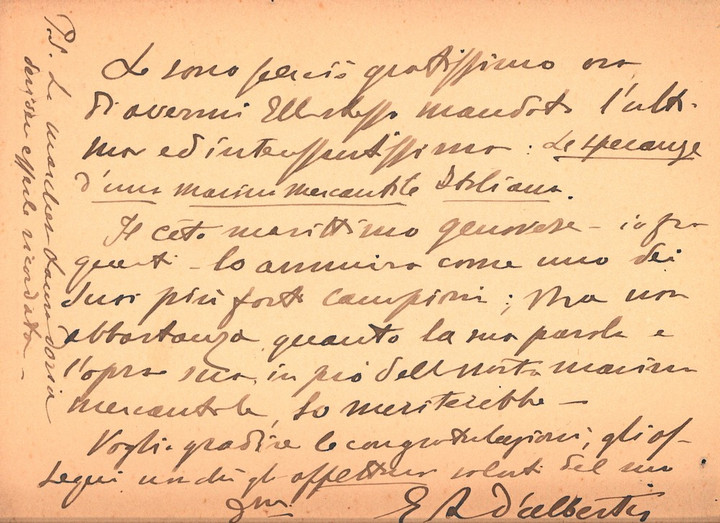 Le sono perciò gratissimo ora
di avermi Ella stessa mandato l'ulti-
ma ed interessantissima: Le speranze
d'una marina mercantile Italiana.
Il ceto marittimo genovese - io fra
questi - lo ammira come uno dei
suoi più forti campioni; Ma non
abbastanza quanto la sua parola e
l'opra sua, in prò dell nostra marina
mercantile, lo meriterebbe -
Voglia gradire le congratulazioni, gli os-
sequi ed i saluti del suo
E A D'Albertis
P.S. La Doria
ricordata -